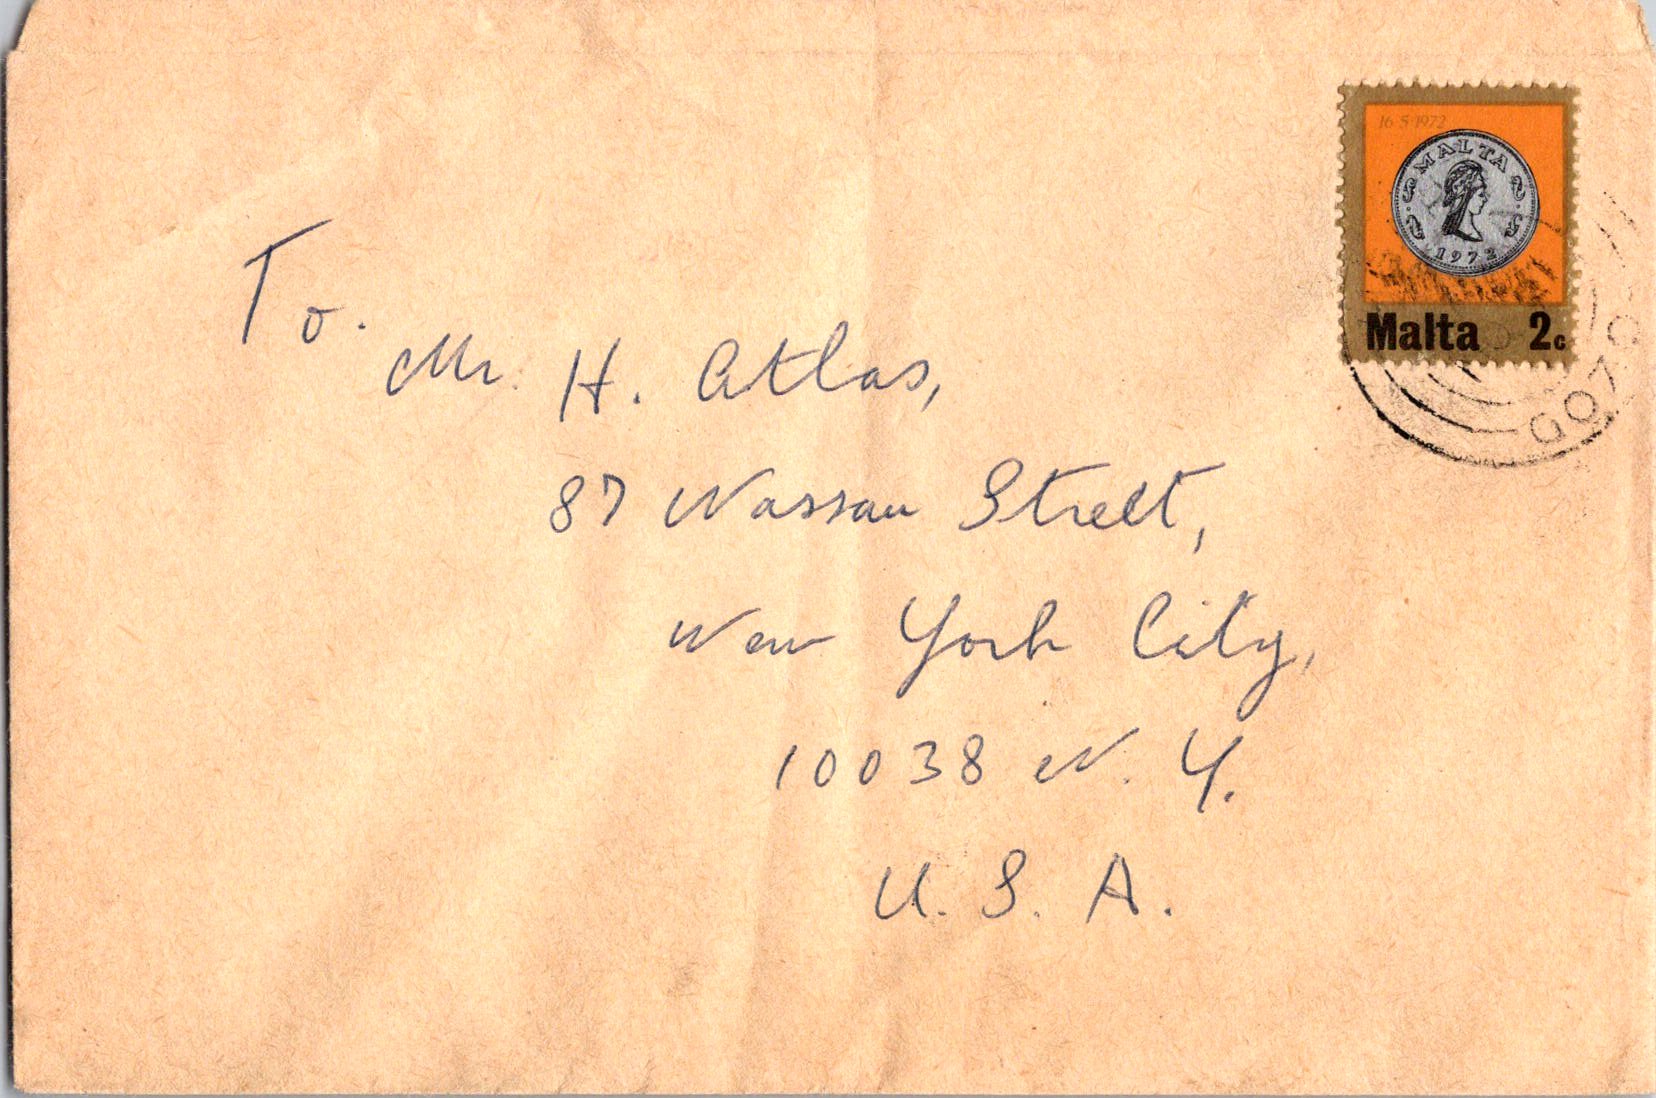 16·5·1972
MALTA
1972
Malta 2c
GOZO
To.
Mr. H. Atlas,
87 Nassau Street,
New York City,
10038 N. Y.
U. S. A.